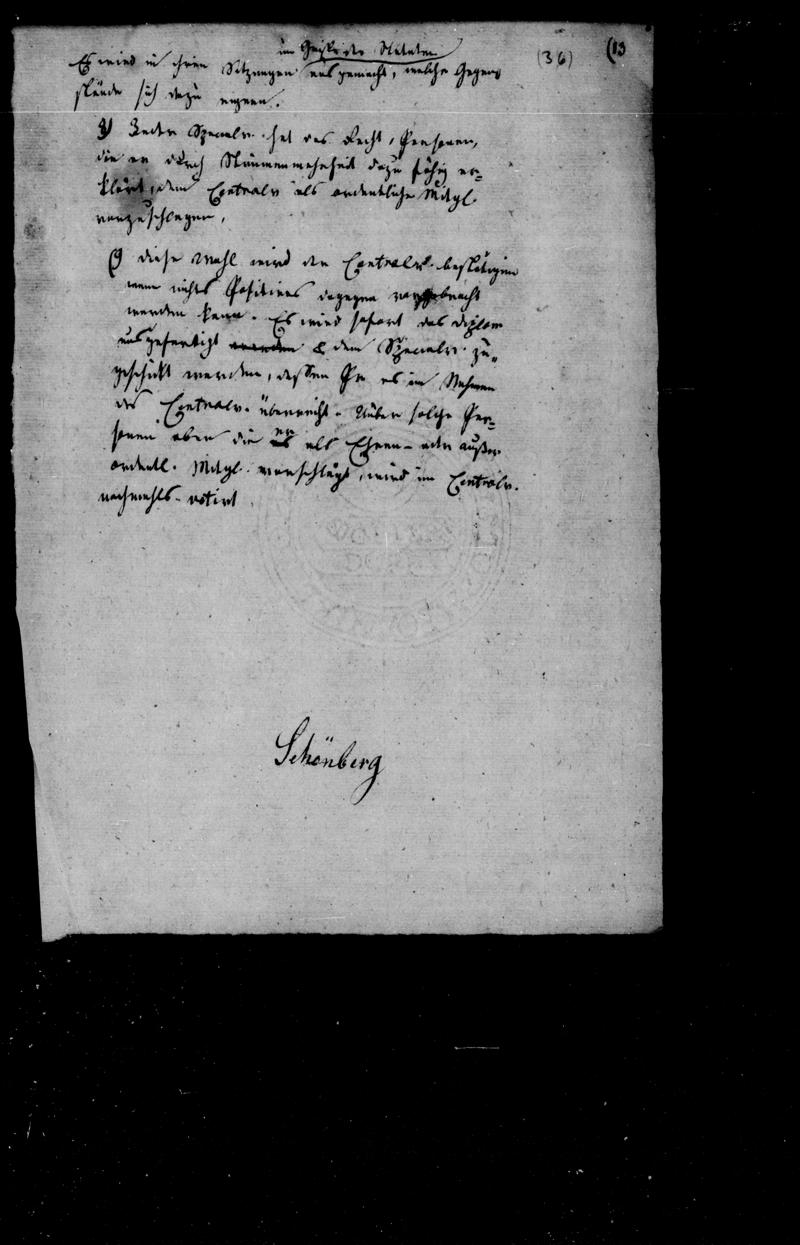 im Geiste der Statuten
(36) (13
Es wird in ihren Sitzungen ausgemacht, welche Gegen
stände sich dazu eignen.
Jeder Specialv. hat das Recht, Personen,
die er durch Stimmenmehrheit dazu fähig er=
klärt, dem Centralv als ordentliche Mitgl.
vorzuschlagen.
diese Wahl wird der Centralv. bestätigen
wenn nichts Positives dagegen vorgebracht
werden kann. Es wird sofort das diplom
ausgefertigt & dem Specialv. zu=
geschickt werden, dessen Pr es im Nahmen
des Centralv. überreicht. Ueber solche Per=
sonen aber die er als Ehren- oder außer
ordentl. Mitgl. vorschlägt, wird im Centralv.
nochmahls votirt
Schönberg